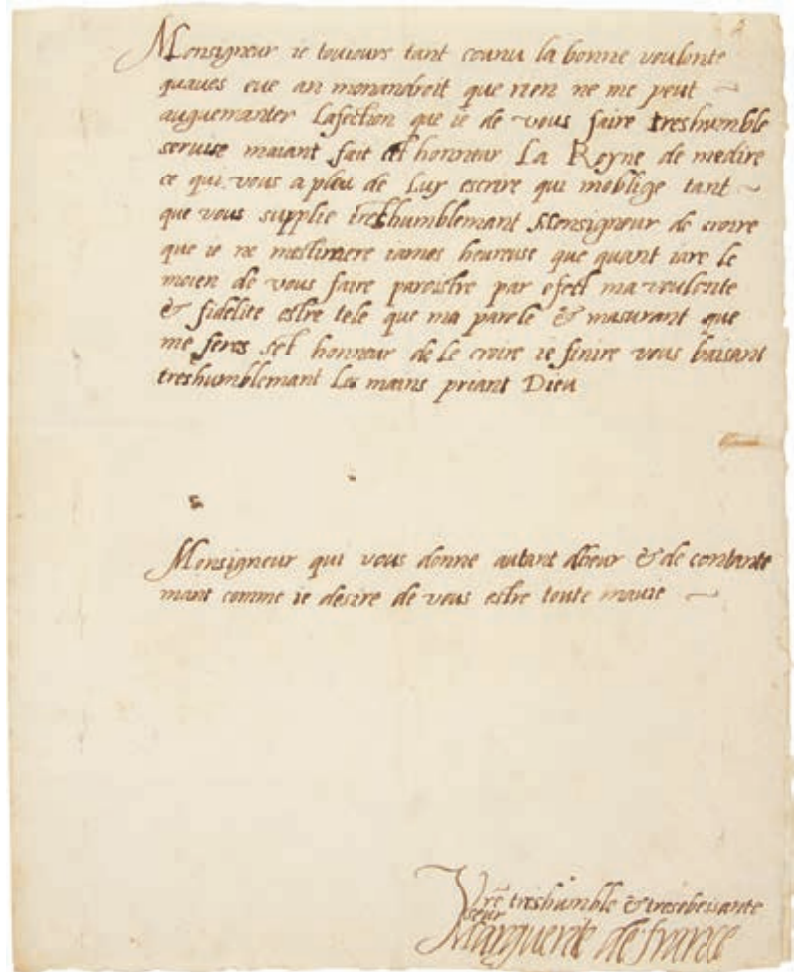 Monsigneur ie touiours tant counu la bonne voulonte
quaves eue an monandroit que rien ne me peut
auguemanter Lafection que ie de vous faire treshumble
servise maiant fait cet honneur La Royne de medire
ce qui vous a pleu de Luy escrire qui moblige tant
que vous supplie treshumblemant Monsigneur de croire
que ie ne mestimere iames heureuse que quant iare le
moien de vous faire paroistre par efect ma voulonte
& fidelite estre tele que ma parole & masurant que
me feres set honneur de le croire ie finire vous baisant
treshumblemant Les mains priant Dieu
Monsigneur qui vous donne autant dheur & de contante
mant comme ie desire de vous estre toute
Vre treshumble & tresobeissante
seur
Marguerite de france